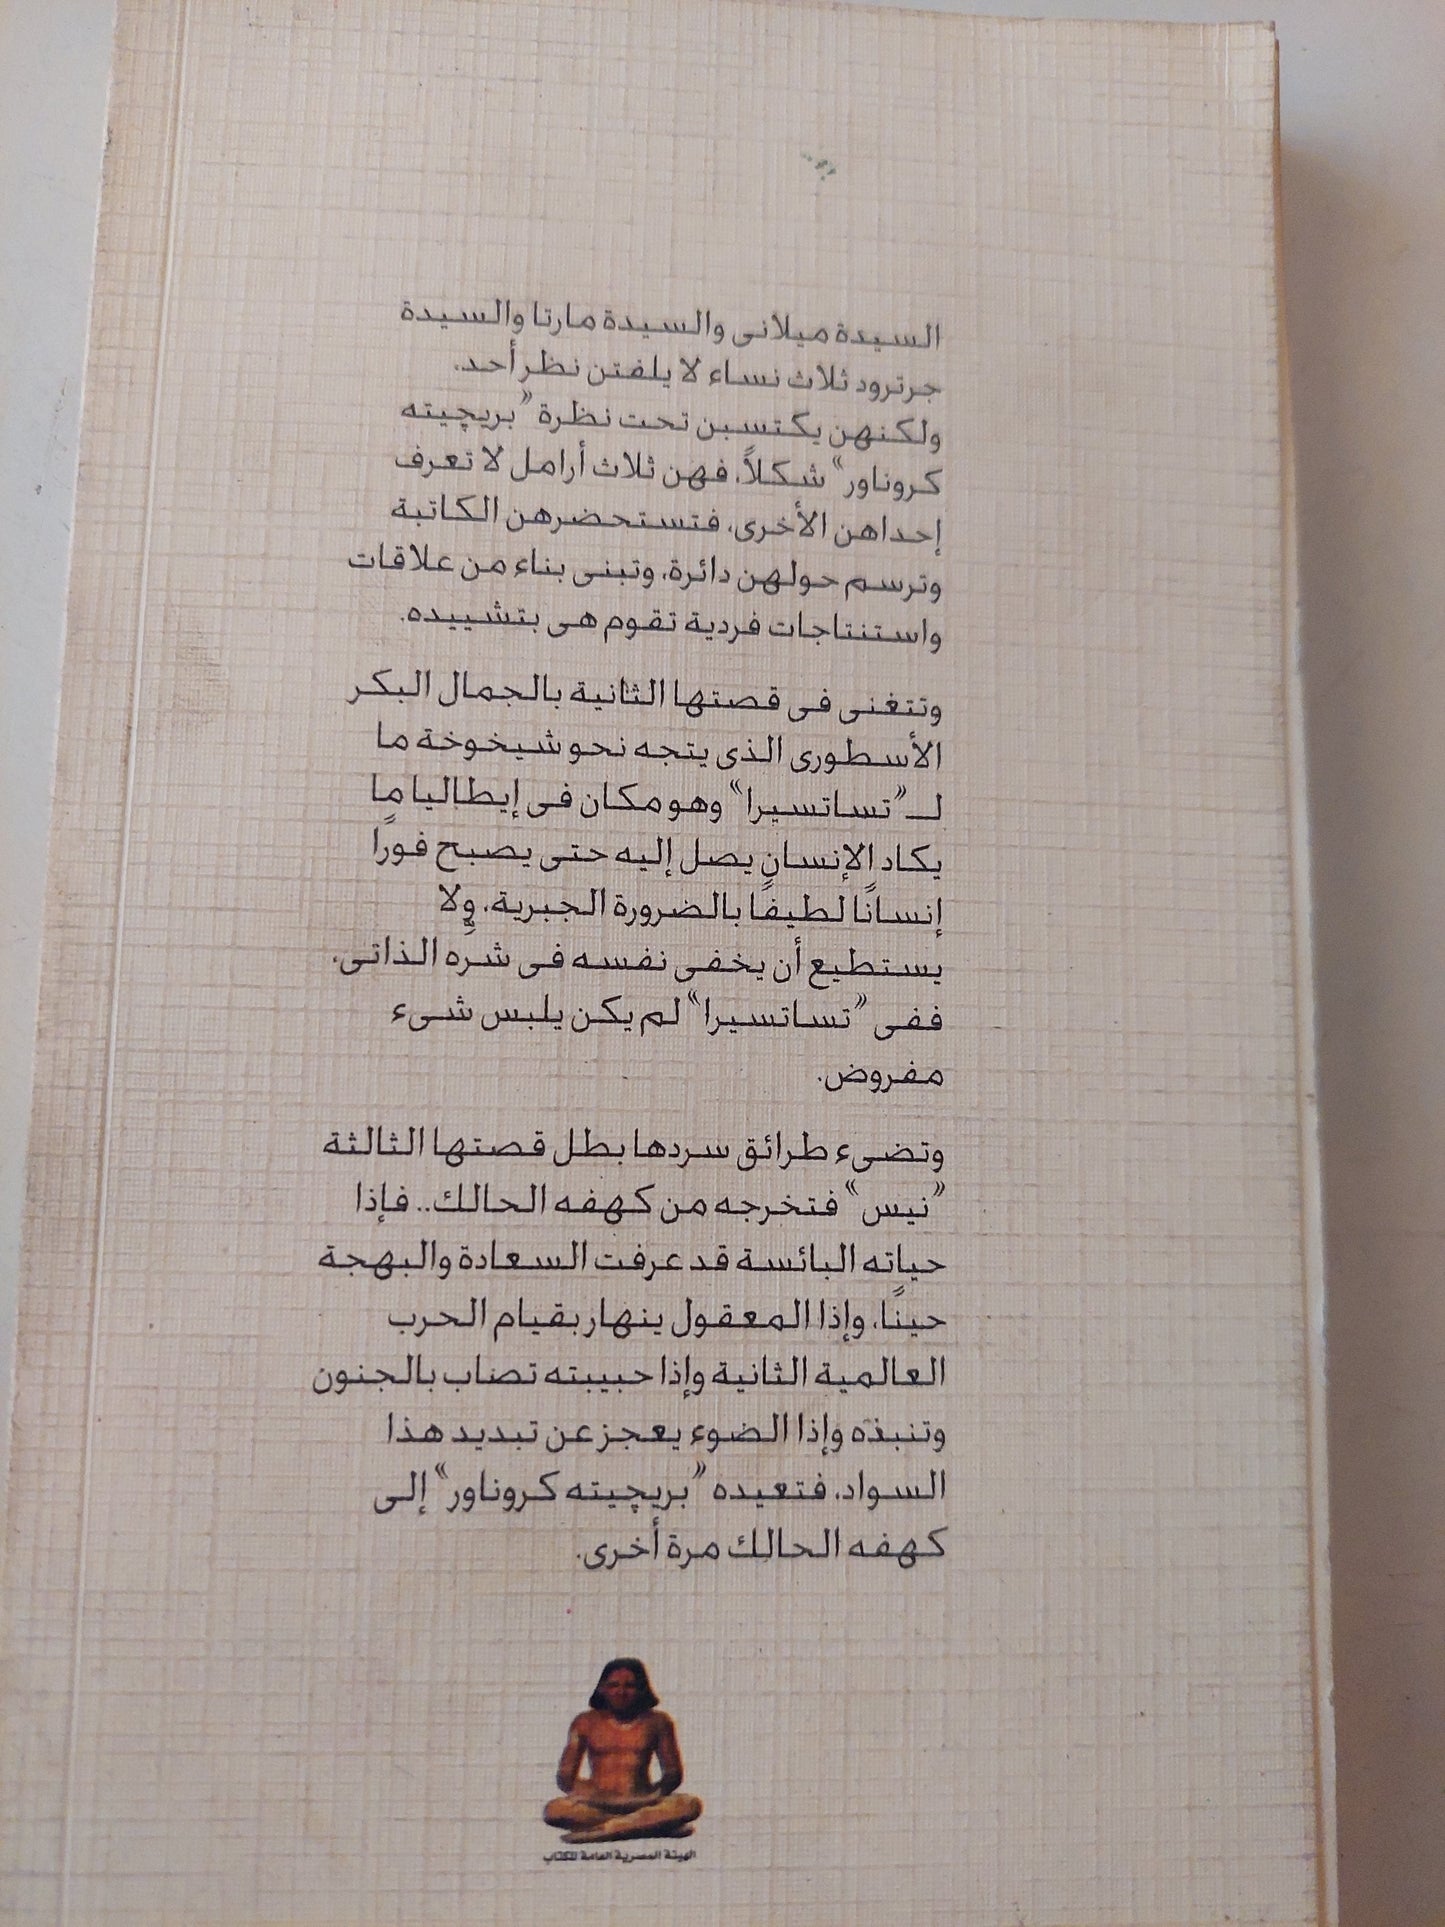 السيدة ميلانى والسيدة مارتا والسيدة
جرترود ثلاث نساء لا يلفتن نظر أحد.
ولكنهن يكتسبن تحت نظرة "بريچيته
كروناور" شكلاً، فهن ثلاث أرامل لا تعرف
إحداهن الأخرى، فتستحضرهن الكاتبة
وترسم حولهن دائرة، وتبنى بناء من علاقات
واستنتاجات فردية تقوم هى بتشييده.
وتتغنى فى قصتها الثانية بالجمال البكر
الأسطورى الذى يتجه نحو شيخوخة ما
لـ "تساتسيرا" وهو مكان فى إيطاليا ما
يكاد الإنسان يصل إليه حتى يصبح فورًا
إنسانًا لطيفًا بالضرورة الجبرية، ولا
يستطيع أن يخفى نفسه فى شره الذاتى،
ففى "تساتسيرا" لم يكن يلبس شىء
مفروض.
وتضىء طرائق سردها بطل قصتها الثالثة
"نيس" فتخرجه من كهفه الحالك.. فإذا
حياته البائسة قد عرفت السعادة والبهجة
حينًا، وإذا المعقول ينهار بقيام الحرب
العالمية الثانية وإذا حبيبته تصاب بالجنون
وتنبذه وإذا الضوء يعجز عن تبديد هذا
السواد، فتعيده "بريچيته كروناور" إلى
كهفه الحالك مرة أخرى.
الهيئة المصرية العامة للكتاب